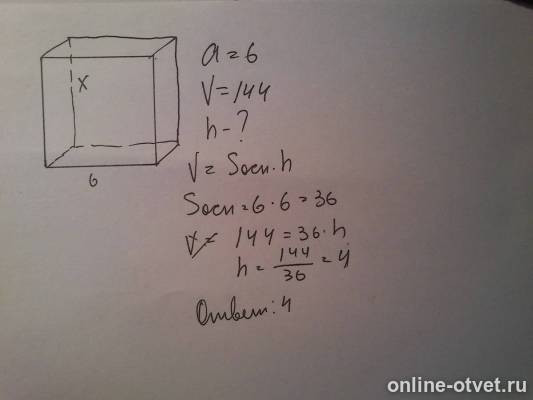 a = 6
V = 144
h - ?
V = Sосн · h
Sосн = 6 · 6 = 36
V = 144 = 36 · h
h = 144/36 = 4
Ответ: 4
x
6
online-otvet.ru